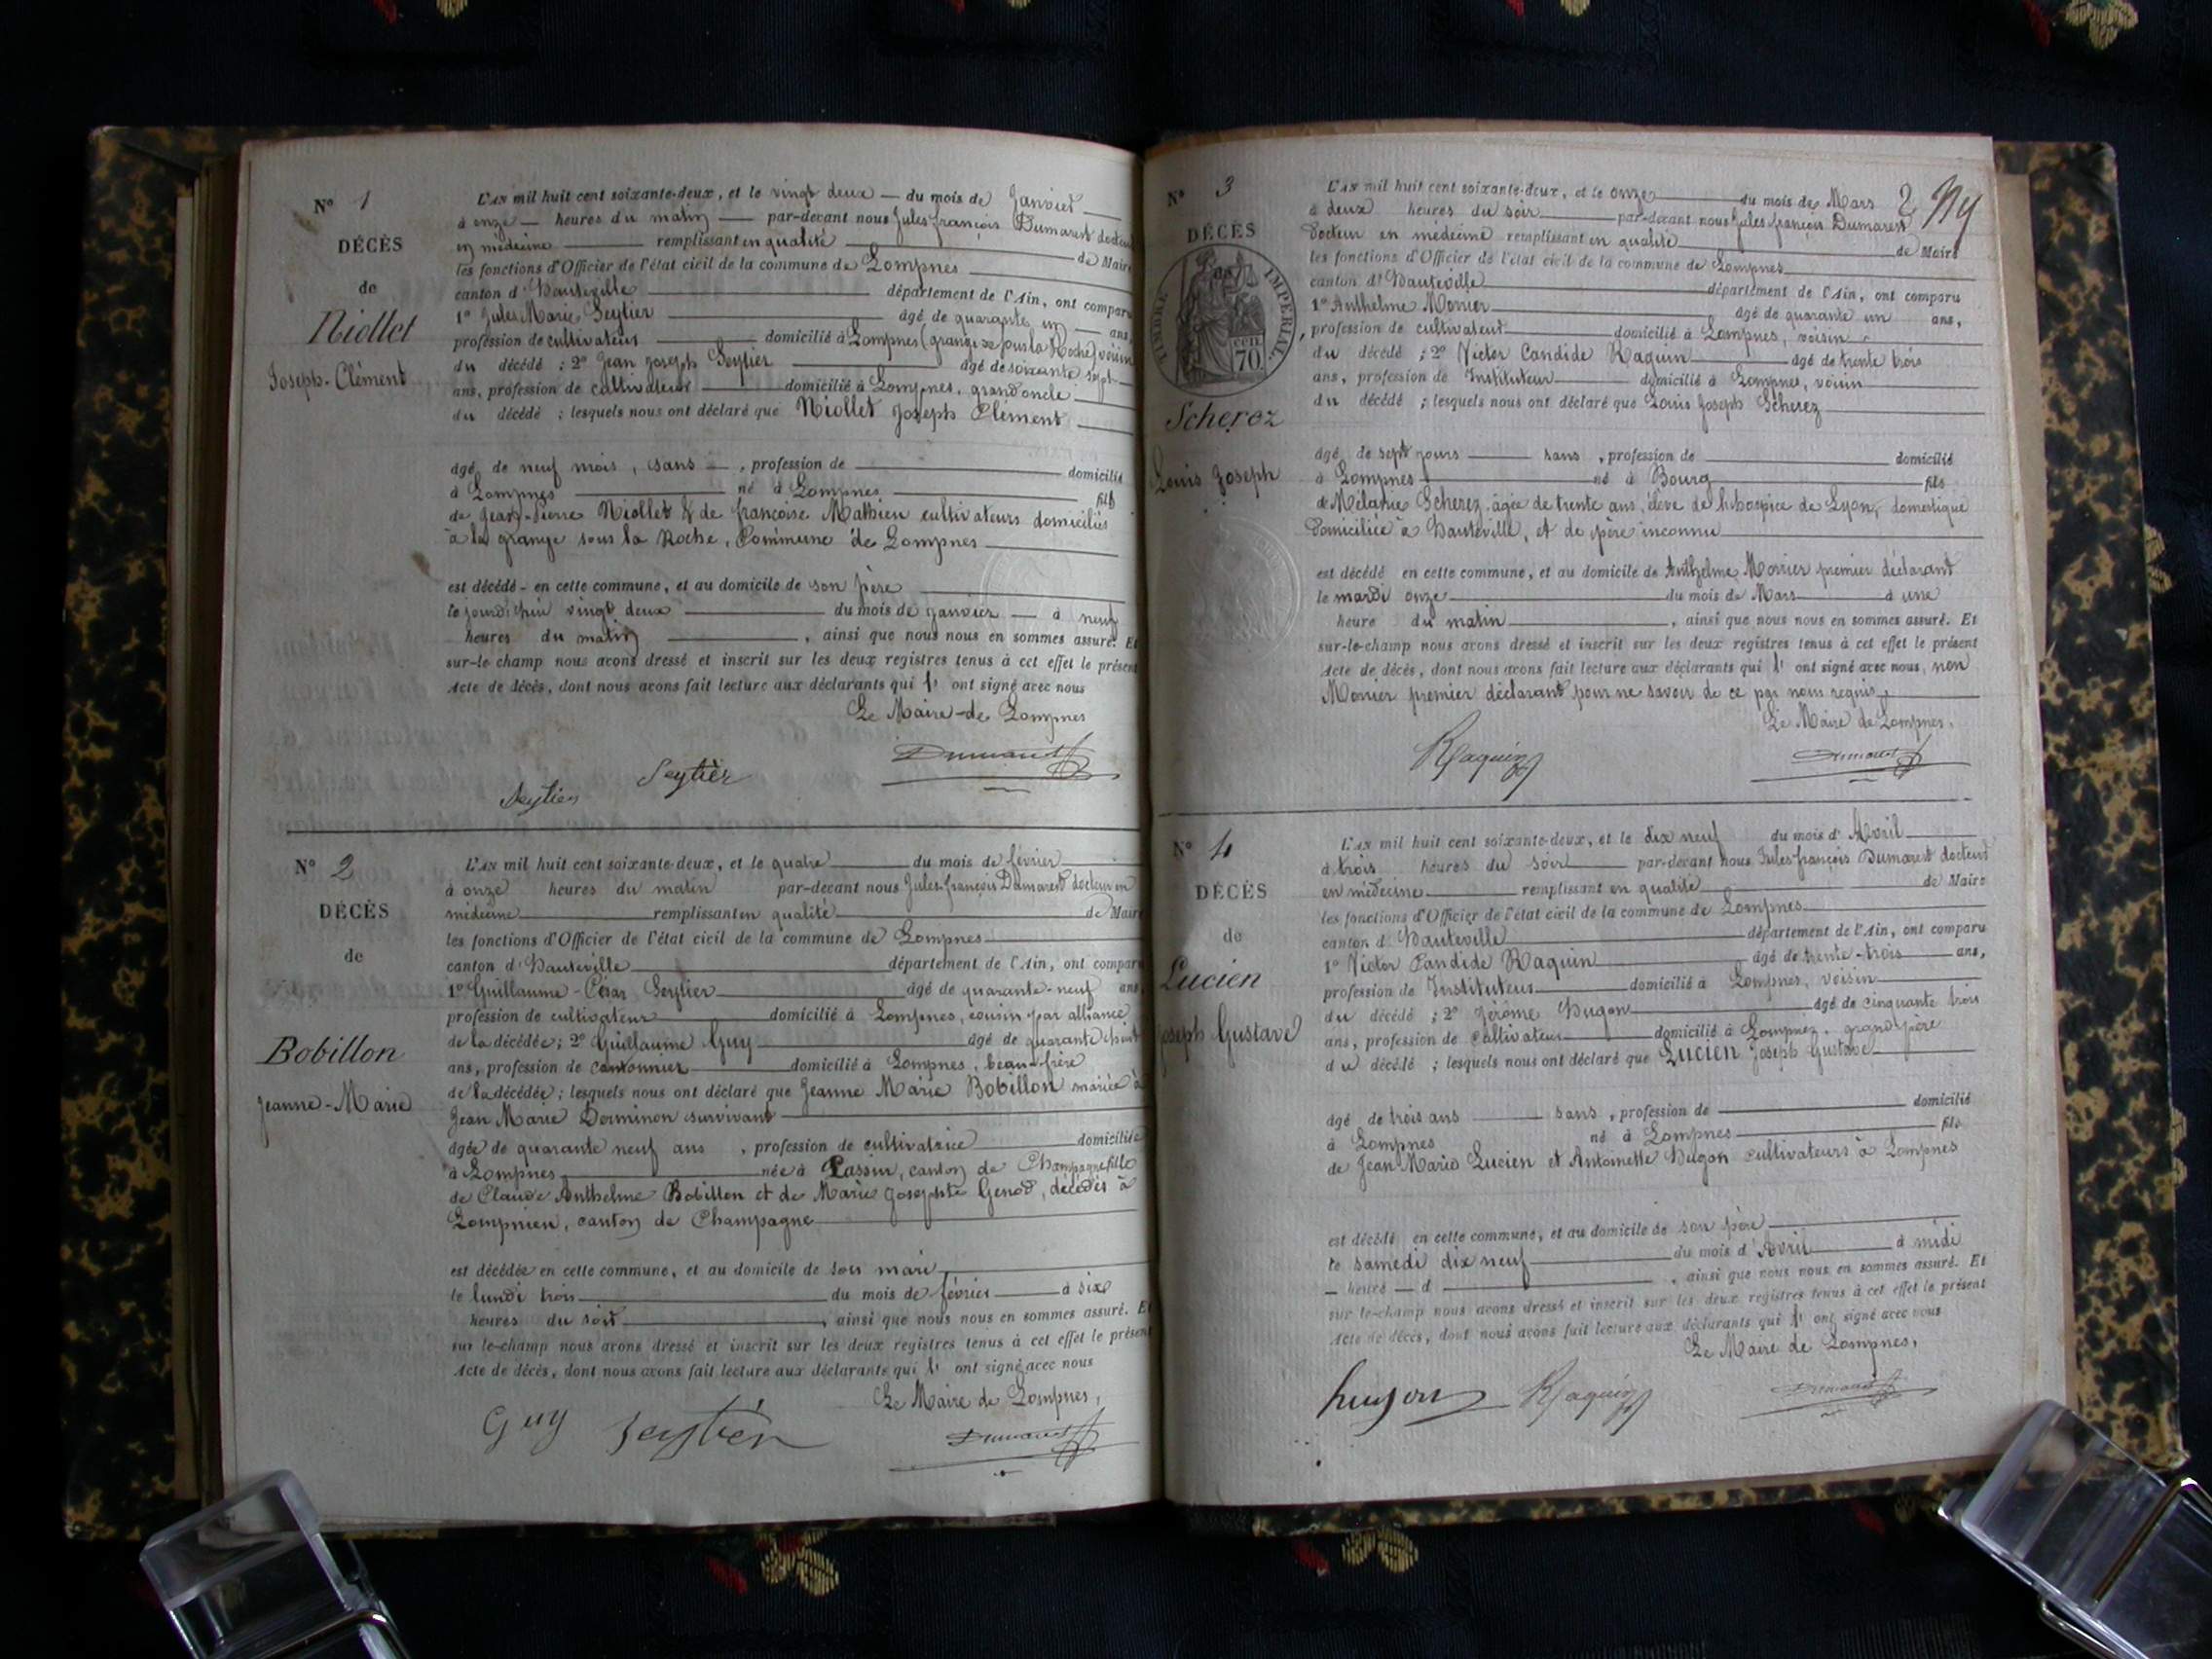 N° 1
DÉCÈS
de
Niollet
Joseph-Clément
L'AN mil huit cent soixante-deux, et le vingt deux — du mois de Janvier
à onze — heures du matin — par-devant nous Jules françois Dumarest docteur
en médecine remplissant en qualité de Maire
les fonctions d'Officier de l'état civil de la commune de Lompnes
canton d'Hauteville département de l'Ain, ont comparu
1° Jules Marie Seytier âgé de quarante un ans,
profession de cultivateur domicilié à Lompnes (grange sous la Roche) voisin
du décédé ; 2° Jean Joseph Seytier âgé de soixante sept
ans, profession de cultivateur domicilié à Lompnes, grand oncle
du décédé ; lesquels nous ont déclaré que Niollet Joseph Clément
âgé de neuf mois, sans —, profession de domicilié
à Lompnes né à Lompnes fils
de Jean-Pierre Niollet & de françoise Mathieu cultivateurs domiciliés
à la grange sous la Roche, Commune de Lompnes
est décédé - en cette commune, et au domicile de son père
le jourd'hui vingt deux du mois de janvier — à neuf
heures du matin, ainsi que nous nous en sommes assuré. Et
sur-le-champ nous avons dressé et inscrit sur les deux registres tenus à cet effet le présent
Acte de décès, dont nous avons fait lecture aux déclarants qui l' ont signé avec nous
Le Maire de Lompnes
Seytier Seytier Dumarest
N° 2
DÉCÈS
de
Bobillon
Jeanne-Marie
L'AN mil huit cent soixante-deux, et le quatre du mois de février
à onze heures du matin par-devant nous Jules-françois Dumarest docteur en
médecine remplissant en qualité de Maire
les fonctions d'Officier de l'état civil de la commune de Lompnes
canton d'Hauteville département de l'Ain, ont comparu
1° Guillaume-César Seytier âgé de quarante-neuf ans,
profession de cultivateur domicilié à Lompnes, cousin par alliance
de la décédée ; 2° Guillaume Guy âgé de quarante
ans, profession de cantonnier domicilié à Lompnes, beau-frère
de la décédée ; lesquels nous ont déclaré que Jeanne Marie Bobillon mariée à
Jean Marie Dorminon survivant
âgée de quarante neuf ans, profession de cultivatrice domiciliée
à Lompnes née à Passin, canton de Champagne fille
de Claude Anthelme Bobillon et de Marie Josephte Genod, décédés à
Lompnieu, canton de Champagne
est décédée en cette commune, et au domicile de son mari
le lundi trois du mois de février à six
heures du soir, ainsi que nous nous en sommes assuré. Et
sur le-champ nous avons dressé et inscrit sur les deux registres tenus à cet effet le présent
Acte de décès, dont nous avons fait lecture aux déclarants qui l' ont signé avec nous
Le Maire de Lompnes,
Guy Seytier Dumarest
N° 3
DÉCÈS
TIMBRE IMPÉRIAL
70 cen
Scherez
Louis Joseph
2
L'AN mil huit cent soixante-deux, et le onze du mois de Mars
à deux heures du soir par-devant nous Jules françois Dumarest
Docteur en médecine remplissant en qualité de Maire
les fonctions d'Officier de l'état civil de la commune de Lompnes
canton d'Hauteville département de l'Ain, ont comparu
1° Anthelme Monier âgé de quarante un ans,
profession de cultivateur domicilié à Lompnes, voisin
du décédé ; 2° Victor Candide Raquin âgé de trente trois
ans, profession de Instituteur domicilié à Lompnes, voisin
du décédé ; lesquels nous ont déclaré que Louis Joseph Scherez
âgé de sept jours sans, profession de domicilié
à Lompnes né à Bourg fils
de Mélanie Scherez âgée de trente ans, élève de l'hospice de Lyon, domestique
Domiciliée à Hauteville, et de père inconnu
est décédé en cette commune, et au domicile de Anthelme Monier premier déclarant
le mardi onze du mois de Mars à une
heure du matin, ainsi que nous nous en sommes assuré. Et
sur-le-champ nous avons dressé et inscrit sur les deux registres tenus à cet effet le présent
Acte de décès, dont nous avons fait lecture aux déclarants qui l' ont signé avec nous, non
Monier premier déclarant pour ne savoir de ce par nous requis
Le Maire de Lompnes,
Raquin Dumarest
N° 4
DÉCÈS
de
Lucien
Joseph Gustave
L'AN mil huit cent soixante-deux, et le dix neuf du mois d'Avril
à trois heures du soir par-devant nous Jules françois Dumarest docteur
en médecine remplissant en qualité de Maire
les fonctions d'Officier de l'état civil de la commune de Lompnes
canton d'Hauteville département de l'Ain, ont comparu
1° Victor Candide Raquin âgé de trente-trois ans,
profession de Instituteur domicilié à Lompnes, voisin
du décédé ; 2° Jérôme Hugon âgé de cinquante trois
ans, profession de cultivateur domicilié à Lompnes, grand père
du décédé ; lesquels nous ont déclaré que Lucien Joseph Gustave
âgé de trois ans sans, profession de domicilié
à Lompnes né à Lompnes fils
de Jean Marie Lucien et Antoinette Hugon cultivateurs à Lompnes
est décédé en cette commune, et au domicile de son père
le samedi dix neuf du mois d'Avril à midi
— heure — d, ainsi que nous nous en sommes assuré. Et
sur le-champ nous avons dressé et inscrit sur les deux registres tenus à cet effet le présent
Acte de décès, dont nous avons fait lecture aux déclarants qui l' ont signé avec nous
Le Maire de Lompnes,
hugon Raquin Dumarest